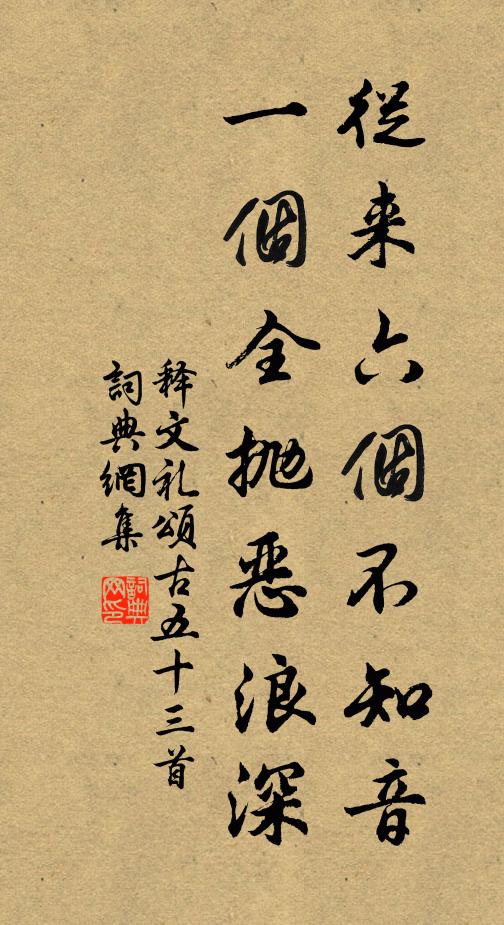 從来六個不知音
一個全抛恶浪深
释文礼頌古五十三首
詞典網集
詞典网印